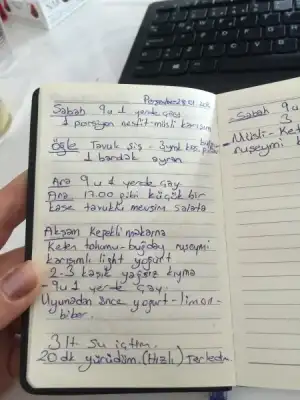 Perşembe 28.01.
Sabah 9 u 1 yerde çay.
1 porsiyon nesfit-müsli karışım
Öğle Tavuk şiş - 3 ynd kaş. pilav
1 bardak ayran
Ara 9 u 1 yerde çay.
Ara 17.00 gibi küçük bir
kase tavuklu mevsim salata
Akşam Kepekli makarna
Keten tohumu-buğday ruşeymi
karışımlı light yoğurt
2-3 kaşık yağsız kıyma
-9u 1 yerde çay.
Uyumadan önce yoğurt-limon-
biber.
3 lt su içtim.
20 dk yürüdüm. (Hızlı)
Sabah 9 u
3
-Müsli-
ruşeymi